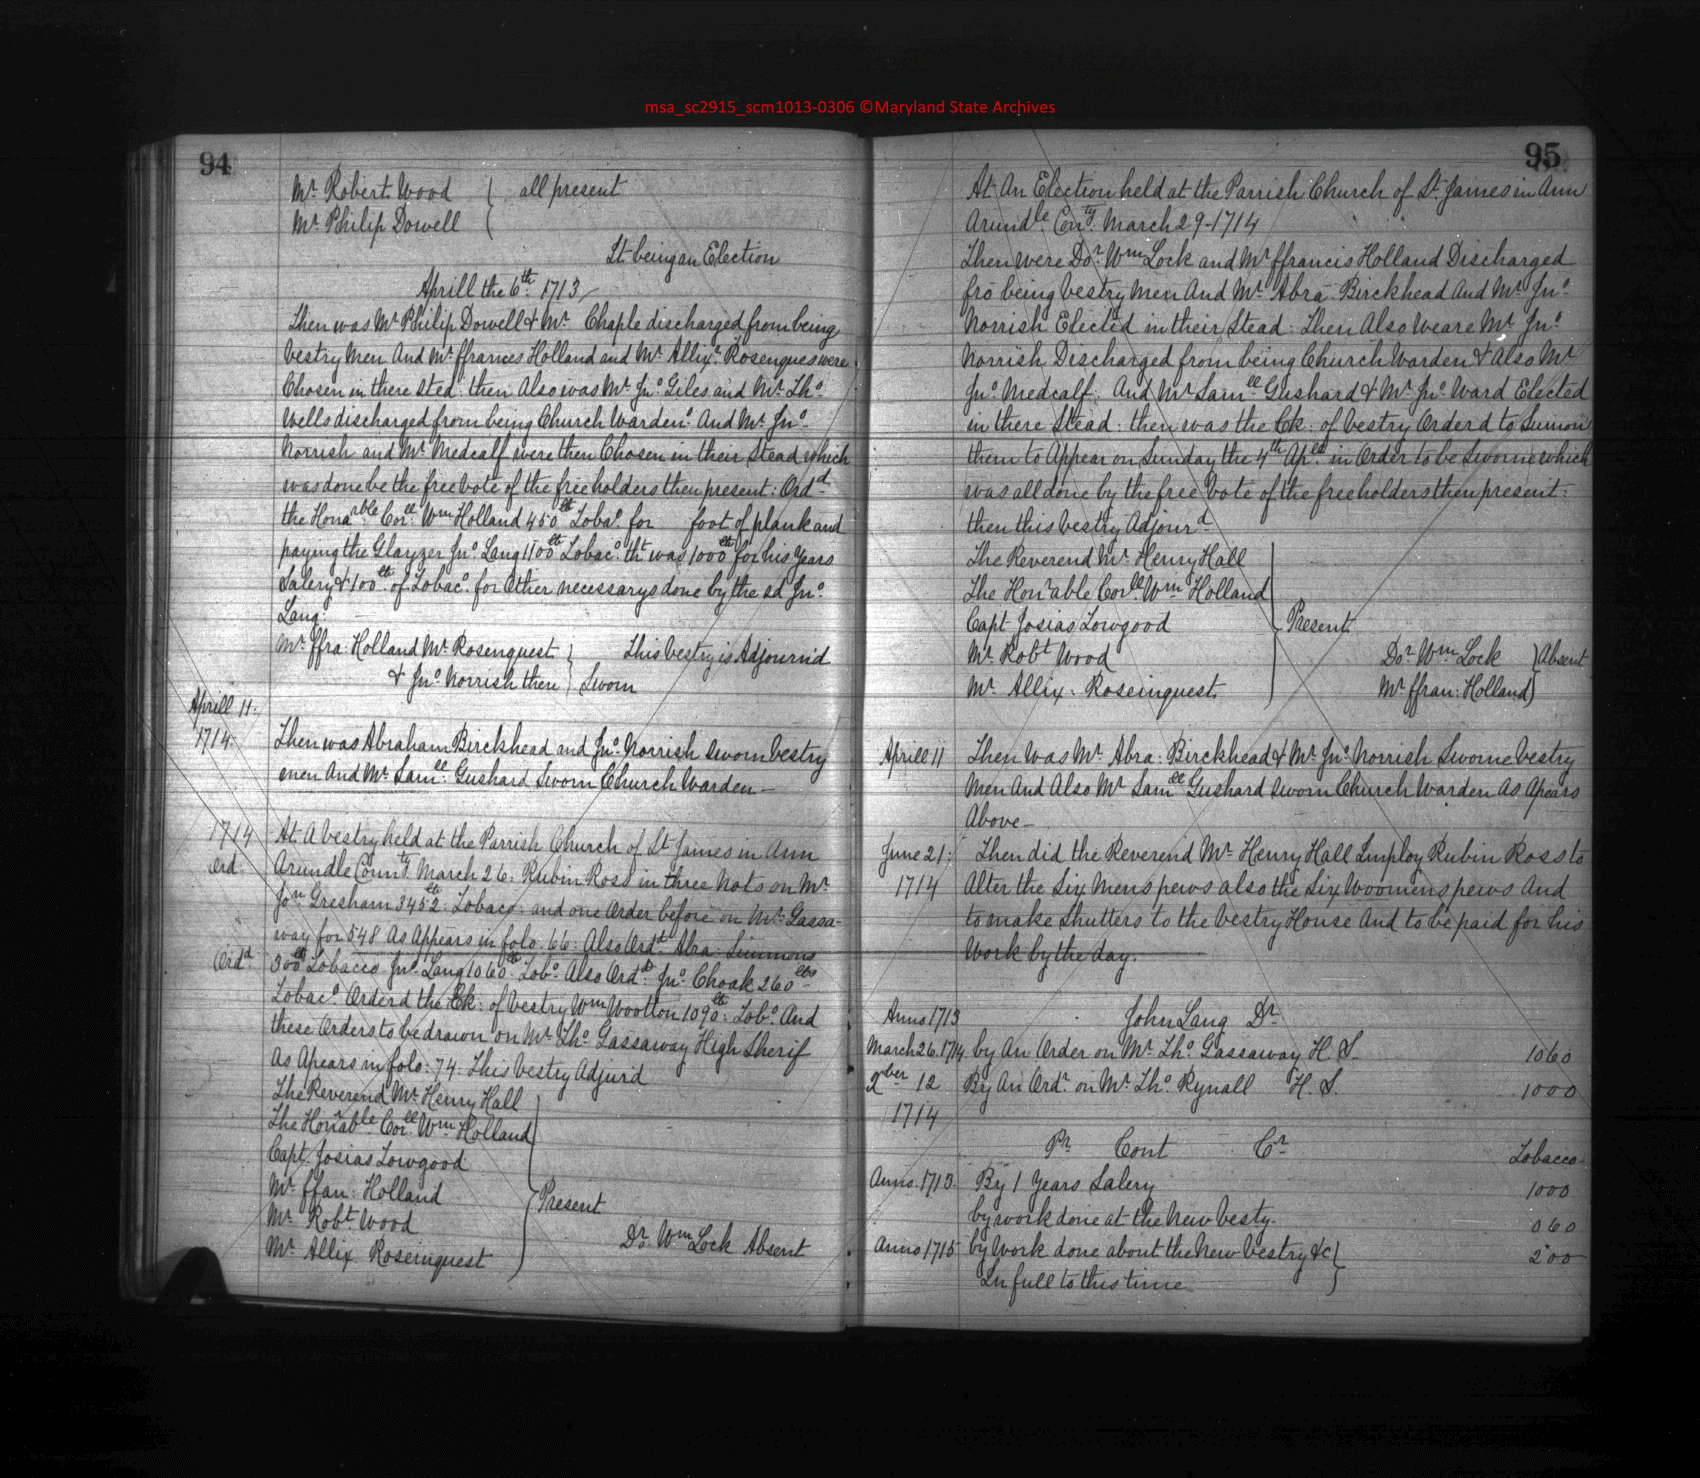 msa_sc2915_scm1013-0306 ©Maryland State Archives
94
Mr. Robert Wood } all present
Mr. Philip Dowell
It being an Election
Aprill the 6th. 1713
Then was Mr. Philip Dowell & Mr. Chaple discharged from being
Vestry Men And Mr. ffrances Holland and Mr. Allixr. Rosenques were
Chosen in there sted: then Also was Mr. Jno. Giles and Mr. Tho.
Wells discharged from being Church Wardens. And Mr. Jno.
Norrish and Mr. Medcalf were then Chosen in their Stead which
was done be the free Vote of the free holders then present: Ordd.
the Honarble Corll. Wm Holland 450lb Tobaco. for foot of plank and
paying the Glayzer Jno. Lang 1100lb Tobaco. tht was 1000lb for his Years
Salery & 100lb. of Tobaco. for Other necessarys done by the sd Jno.
Lang:
Mr. ffra: Holland Mr. Rosenquest } This Vestry is Adjourn'd
& Jno. Norrish then } Sworn
Aprill 11.
1714.
Then was Abraham Birckhead and Jno. Norrish Sworn Vestry
men And Mr. Samll. Gushard Sworn Church Warden —
1714
Ord.
At A Vestry held at the Parrish Church of St James in Ann
Arundle County. March 26: Rubin Ross in three Nots on Mr
Jon Gresham 3452lb. Tobaco: and one Order before on Mr. Gassa-
way for 548 As Appears in folo. 66: Also Ordd. Abra: Simmons
Ordd.
300lb Tobacco Jno. Lang 1060lb. Tobo. Also Ordd. Jno. Choak 260lbs
Tobaco. Orderd the Ck: of Vestry Wm Wootton 1090lb: Tobo. And
these Orders to be drawn on Mr. Tho. Gassaway High Sherif
As Apears in folo: 74: This Vestry Adjur'd
The Reverend Mr. Henry Hall
The Honrable. Corll. Wm Holland
Capt. Josias Towgood
Mr. ffan: Holland } Present
Mr. Robt. Wood
Dr. Wm Lock Absent
Mr. Allix. Roseinquest
95
At An Election held at the Parrish Church of St. James in Ann
Arundle. Conty. March 29-1714
Then were Dor. Wm Lock and Mr ffrancis Holland Discharged
fro being Vestry Men And Mr. Abra. Birckhead And Mr. Jno.
Norrish Elected in their Stead: Then Also Weare Mr. Jno.
Norrish Discharged from being Church Warden & Also Mr
Jno. Medcalf: And Mr Samll Gushard & Mr. Jno. Ward Elected
in there Stead: then was the Ck: of Vestry Orderd to Sumon
them to Appear on Sunday the 4th Apll in Order to be Sworne which
was all done by the free Vote of the free holders then present:
then this Vestry Adjourd
The Reverend Mr. Henry Hall
The Honrable Corll. Wm Holland
Capt Josias Towgood } Present
Mr. Robt Wood Dor. Wm Lock } Absent
Mr. Allix. Roseinquest. Mr. ffran: Holland
Aprill 11
Then was Mr. Abra: Birckhead & Mr. Jno. Norrish Sworne Vestry
Men And Also Mr Samll Gushard Sworn Church Warden As Apears
Above —
June 21:
1714
Then did the Reverend Mr. Henry Hall Imploy Rubin Ross to
Alter the Six Mens pews also the Six Woomens pews And
to make Shutters to the Vestry House And to be paid for his
Work by the day.
Anno 1713
John Lang Dr.
March 26. 1714. by An Order on Mr. Tho. Gassaway H. S. 1060
9ber 12 By An Ordr. on Mr. Tho. Rynall H. S. 1000
1714
Pr Cont Cr Tobacco
Anno. 1713. By 1 Years Salery 1000
by work done at the New Vesty. 060
Anno 1715 by Work done about the New Vestry &c } 200
In full to this time